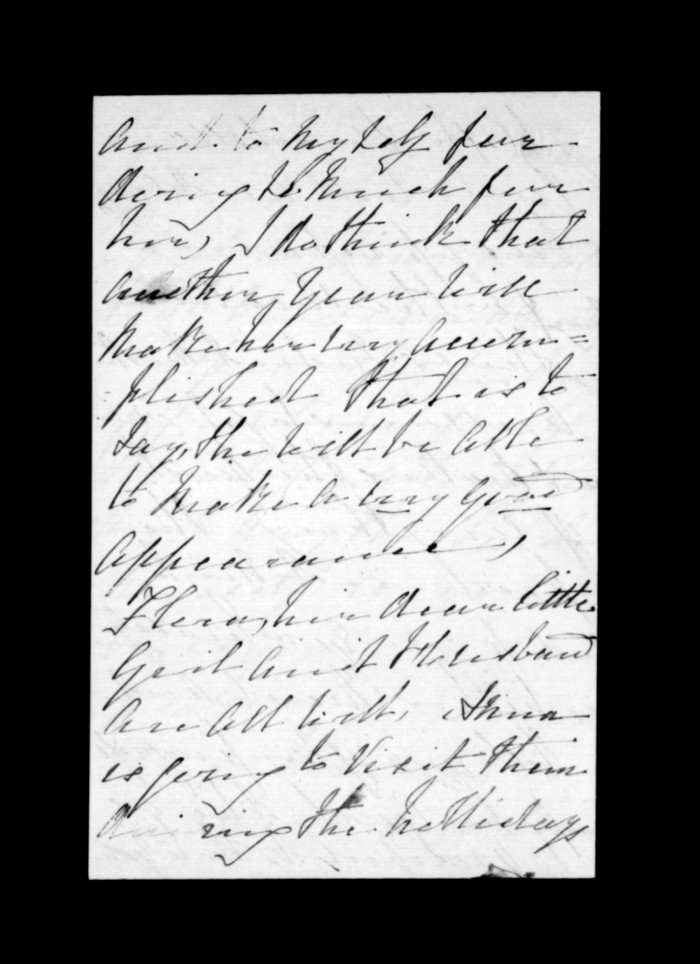 and to myself for
doing so much for
her, I do think that
another year will
make her very accom=
=plished that is to
say, she will be able
to make a very good
appearance,
Flora, her dear little
Girl and Husband
are all well,
is going to visit them
during the hollidays